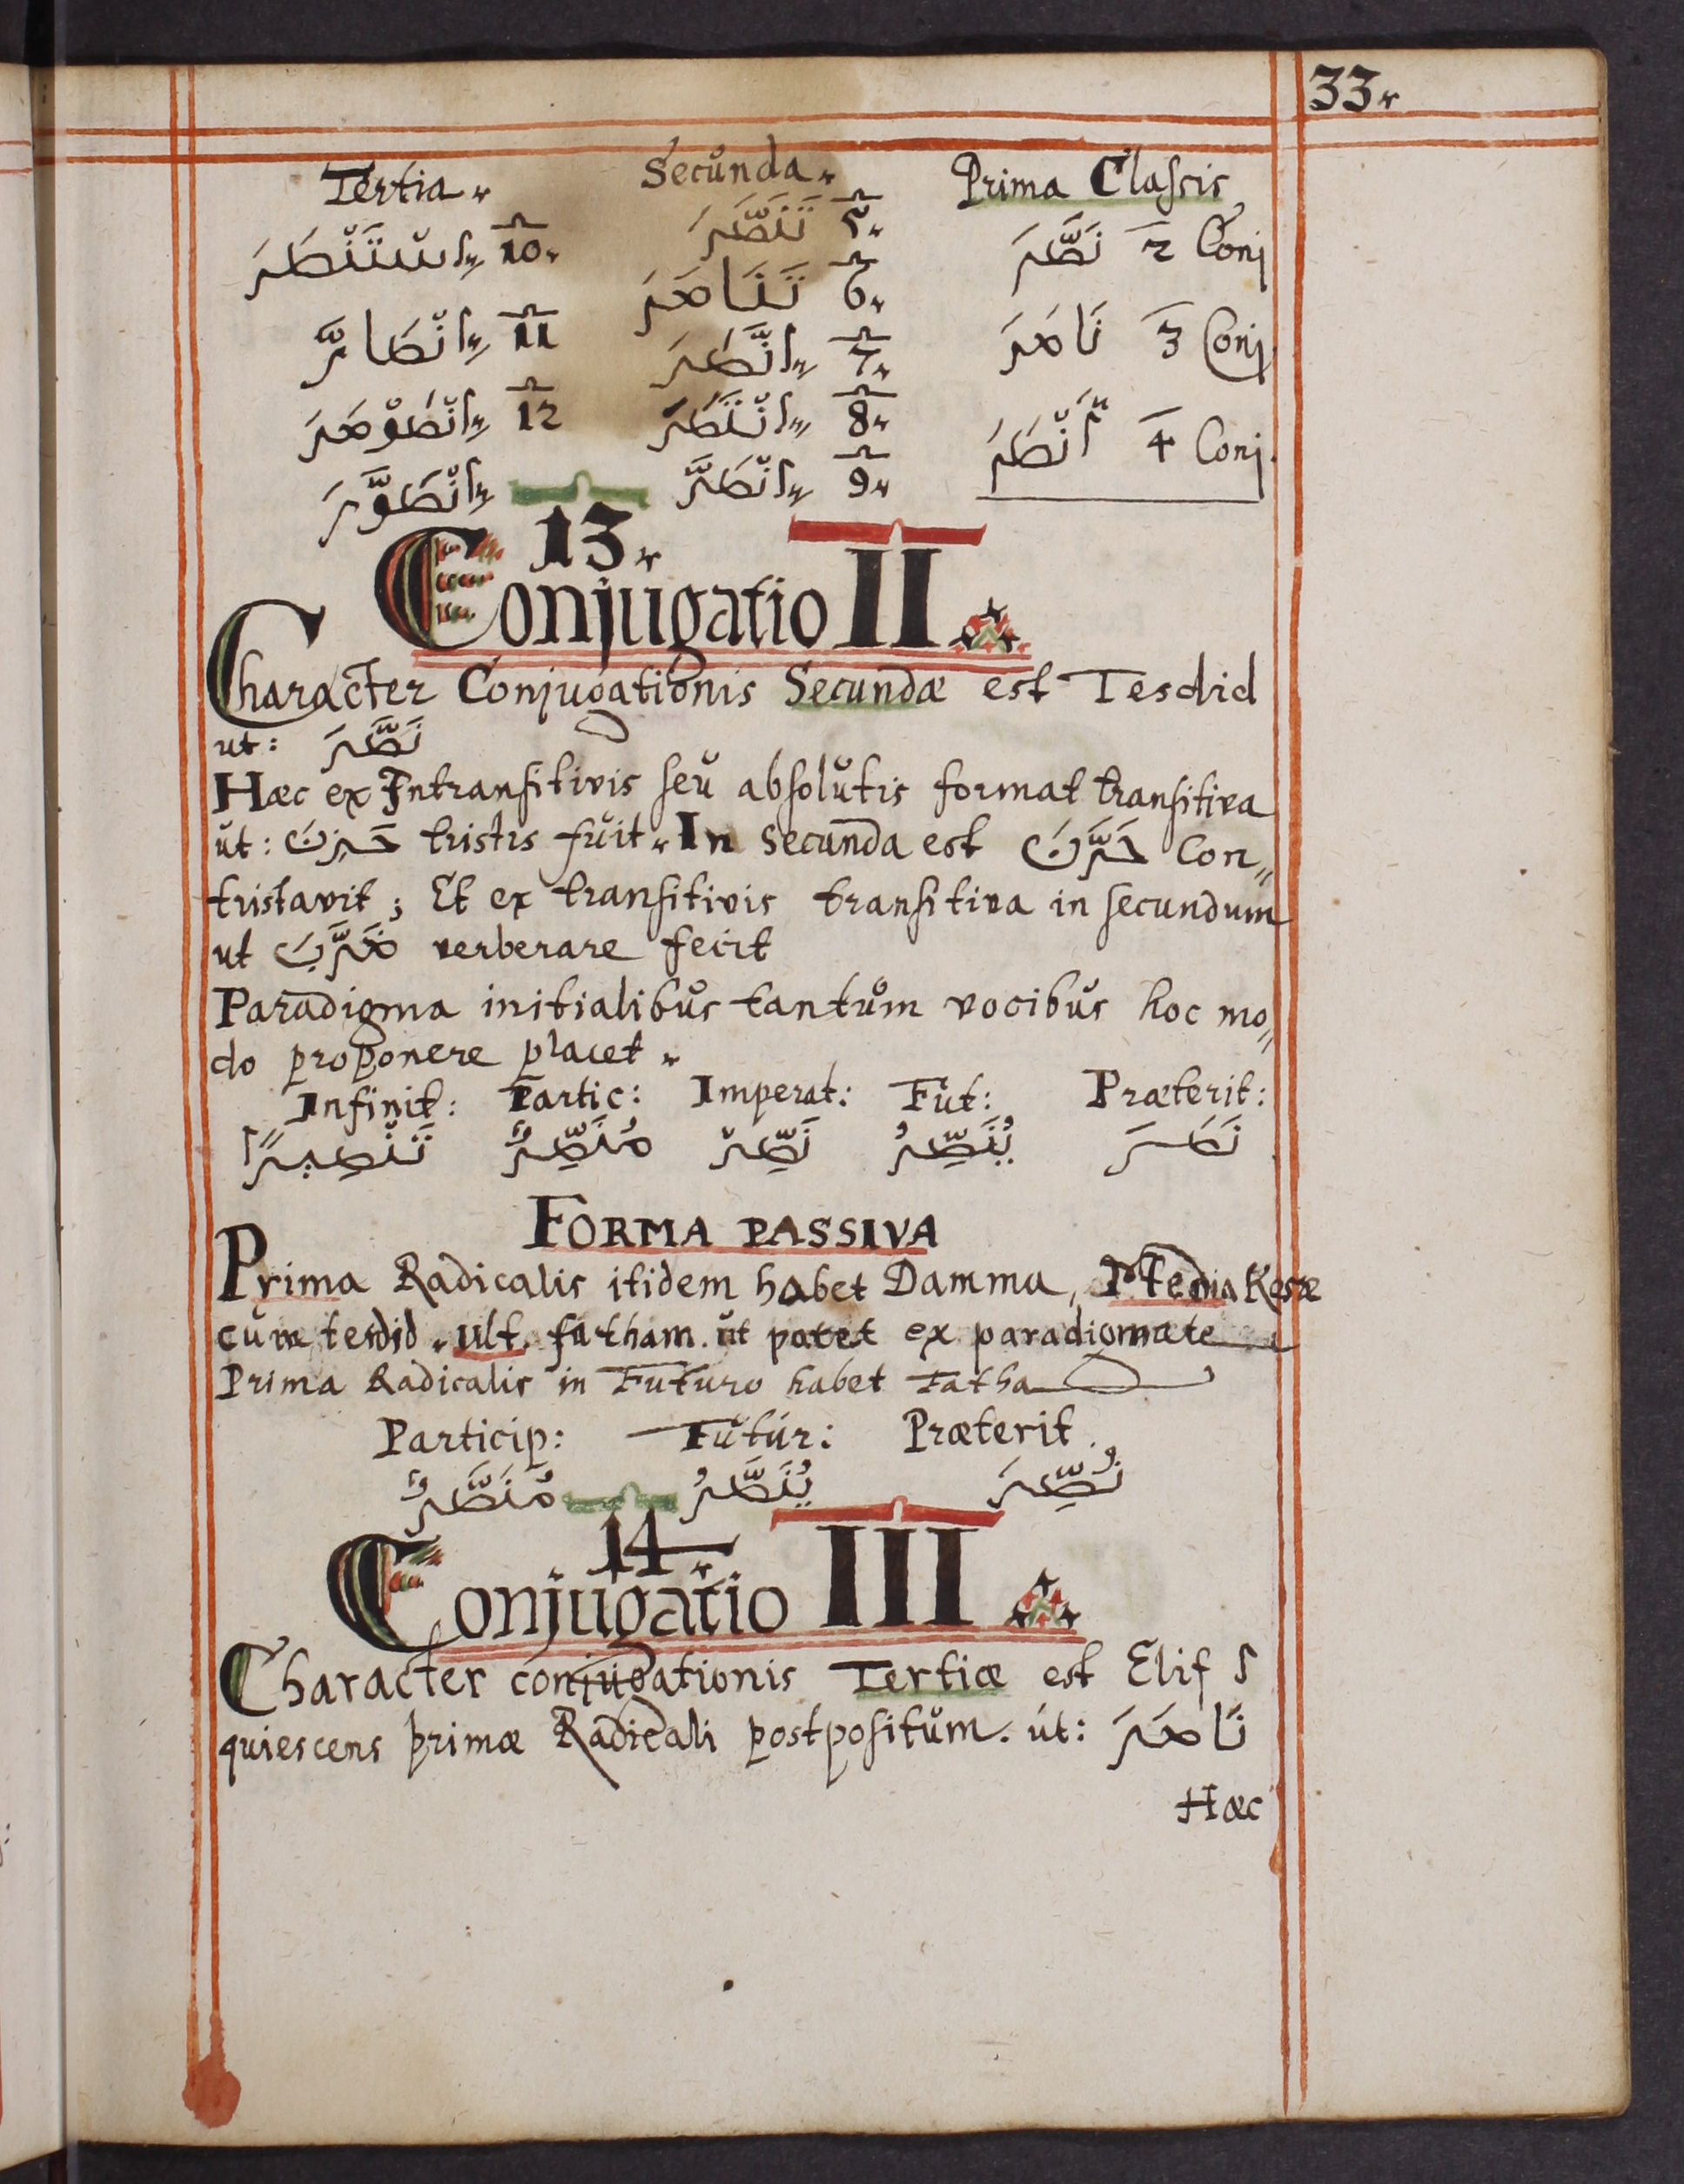 33.
Tertia. Secunda. Prima Classis
اِسْتَنْصَرَ 10. تَنَصَّرَ 5. نَصَّرَ 2 Conj
اِنْصَارَّ 11 تَنَاصَرَ 6. نَاصَرَ 3 Conj.
اِنْصَوْصَرَ 12 اِنَّصَرَ 7. أَنْصَرَ 4 Conj.
اِنْتَصَرَ 8.
اِنْصَوَّرَ 13. اِنْصَرَّ 9.
Conjugatio II
Character Conjugationis Secundæ est Tesdid
ut: نَصَّرَ
Hæc ex Intransitivis seu absolutis format transitiva
ut: حَزِنَ tristis fuit. In Secunda est حَزَّنَ Con„
tristavit; Et ex transitivis transitiva in secundum
ut ضَرَّبَ verberare fecit
Paradigma initialibus tantum vocibus hoc mo„
do proponere placet.
Infinit: Partic: Imperat: Fut: Præterit:
تَنْصِيرًا مُنَصِّرٌ نَصِّرْ يُنَصِّرُ نَصَرَ
FORMA PASSIVA
Prima Radicalis itidem habet Damma, Media Kesre
cum tesdid. ult. fatham. ut patet ex paradigmate
Prima Radicalis in Futuro habet Fatha
Particip: Futur: Præterit.
مُنَصَّرٌ يُنَصَّرُ نُصِّرَ
14.
Conjugatio III
Character conjugationis Tertiæ est Elif ا
quiescens primæ Radicali postpositum. ut: نَاصَرَ
Hæc